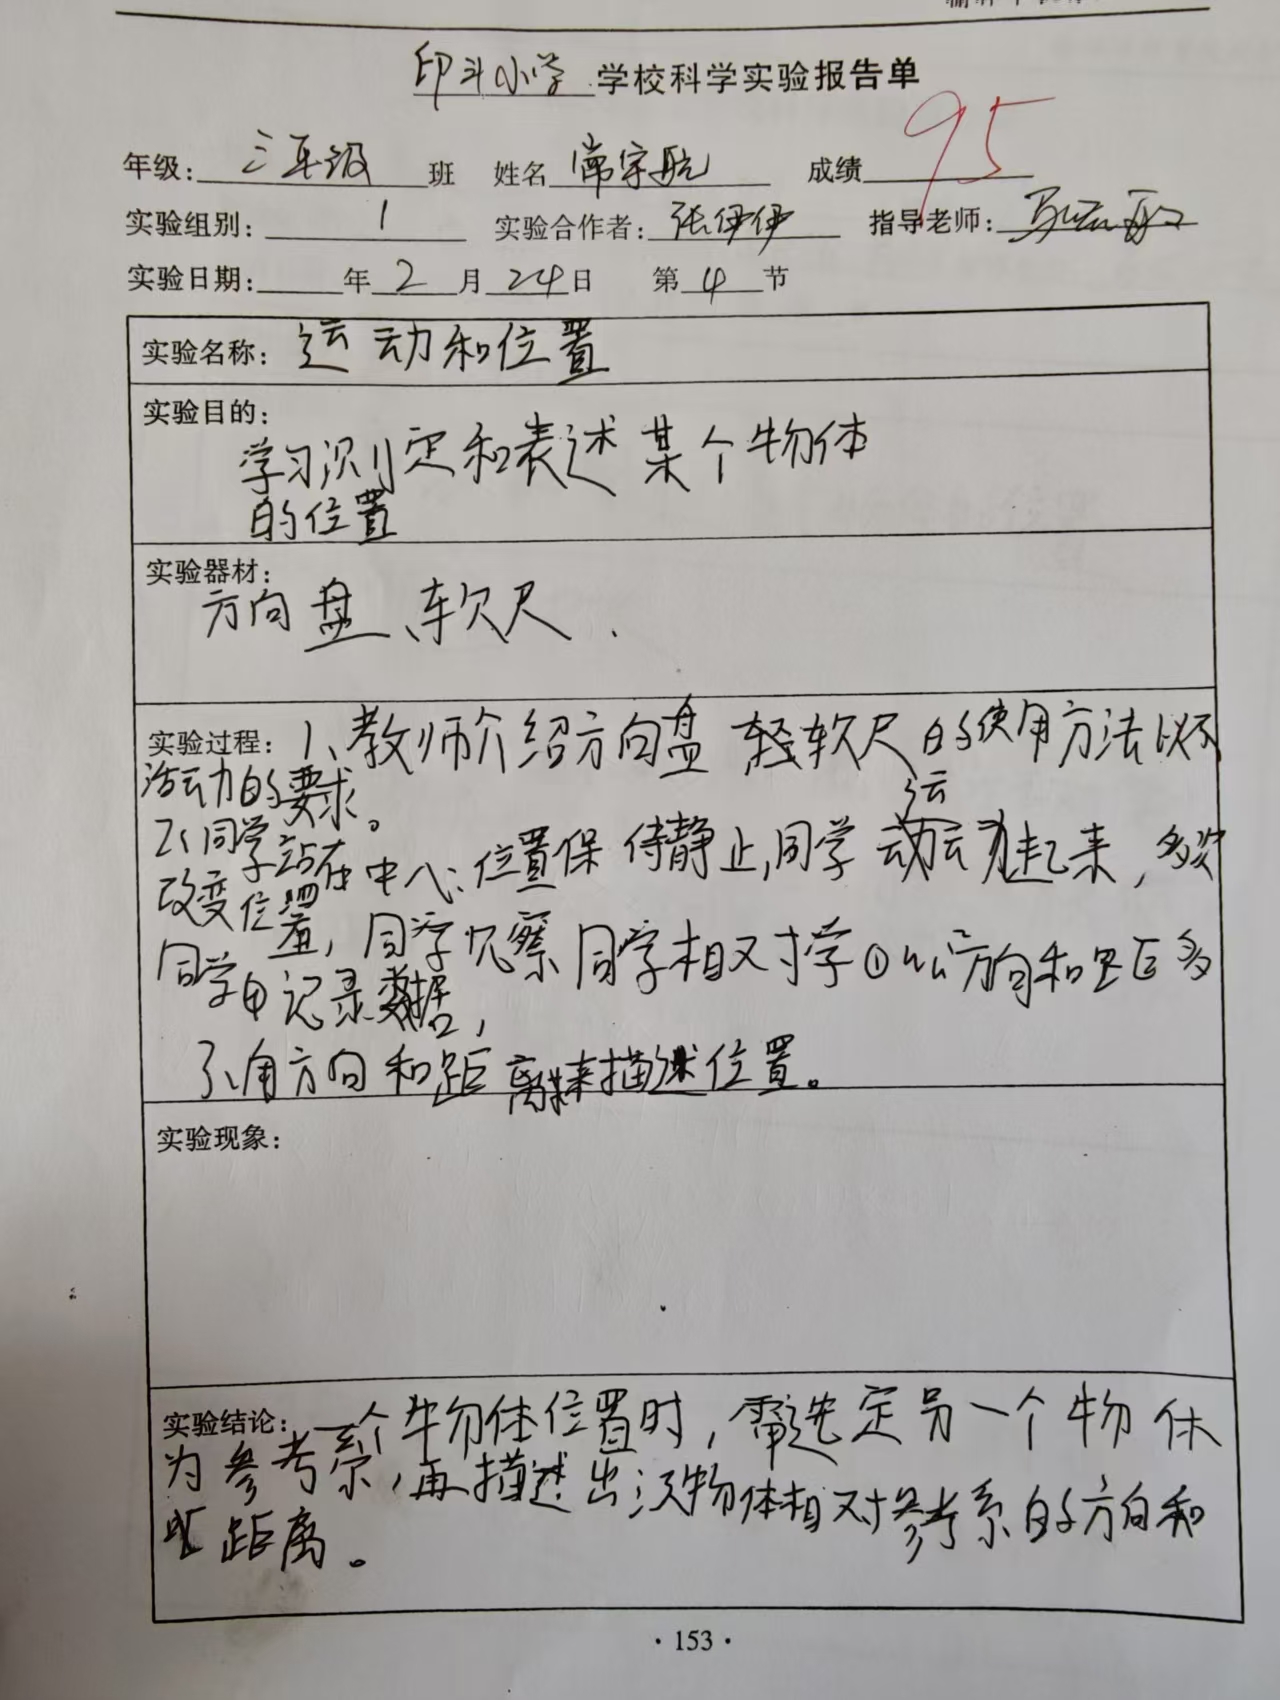 印斗小学 学校科学实验报告单
年级: 三年级 班 姓名 常宇航 成绩 95
实验组别: 1 实验合作者: 张伊伊 指导老师:
实验日期: 年 2 月 24 日 第 4 节
实验名称: 运动和位置
实验目的:
学习测定和表述某个物体
的位置
实验器材:
方向盘、软尺.
实验过程: 1、教师介绍方向盘 软尺的使用方法
活动的要求。
2、同学站在中心位置保持静止,同学 运动起来,多次
改变位置,同学观察同学相对学 方向和距
同学 记录数据,
3、用方向和距离来描述位置。
实验现象:
实验结论: 一个物体位置时,需选定另一个物体
为参考系,再描述出该物体相对参考系的方向和
距离。
· 153 ·